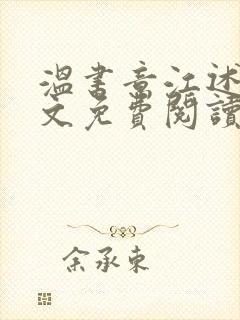 溫書意江述
文免費閱讀
余承東